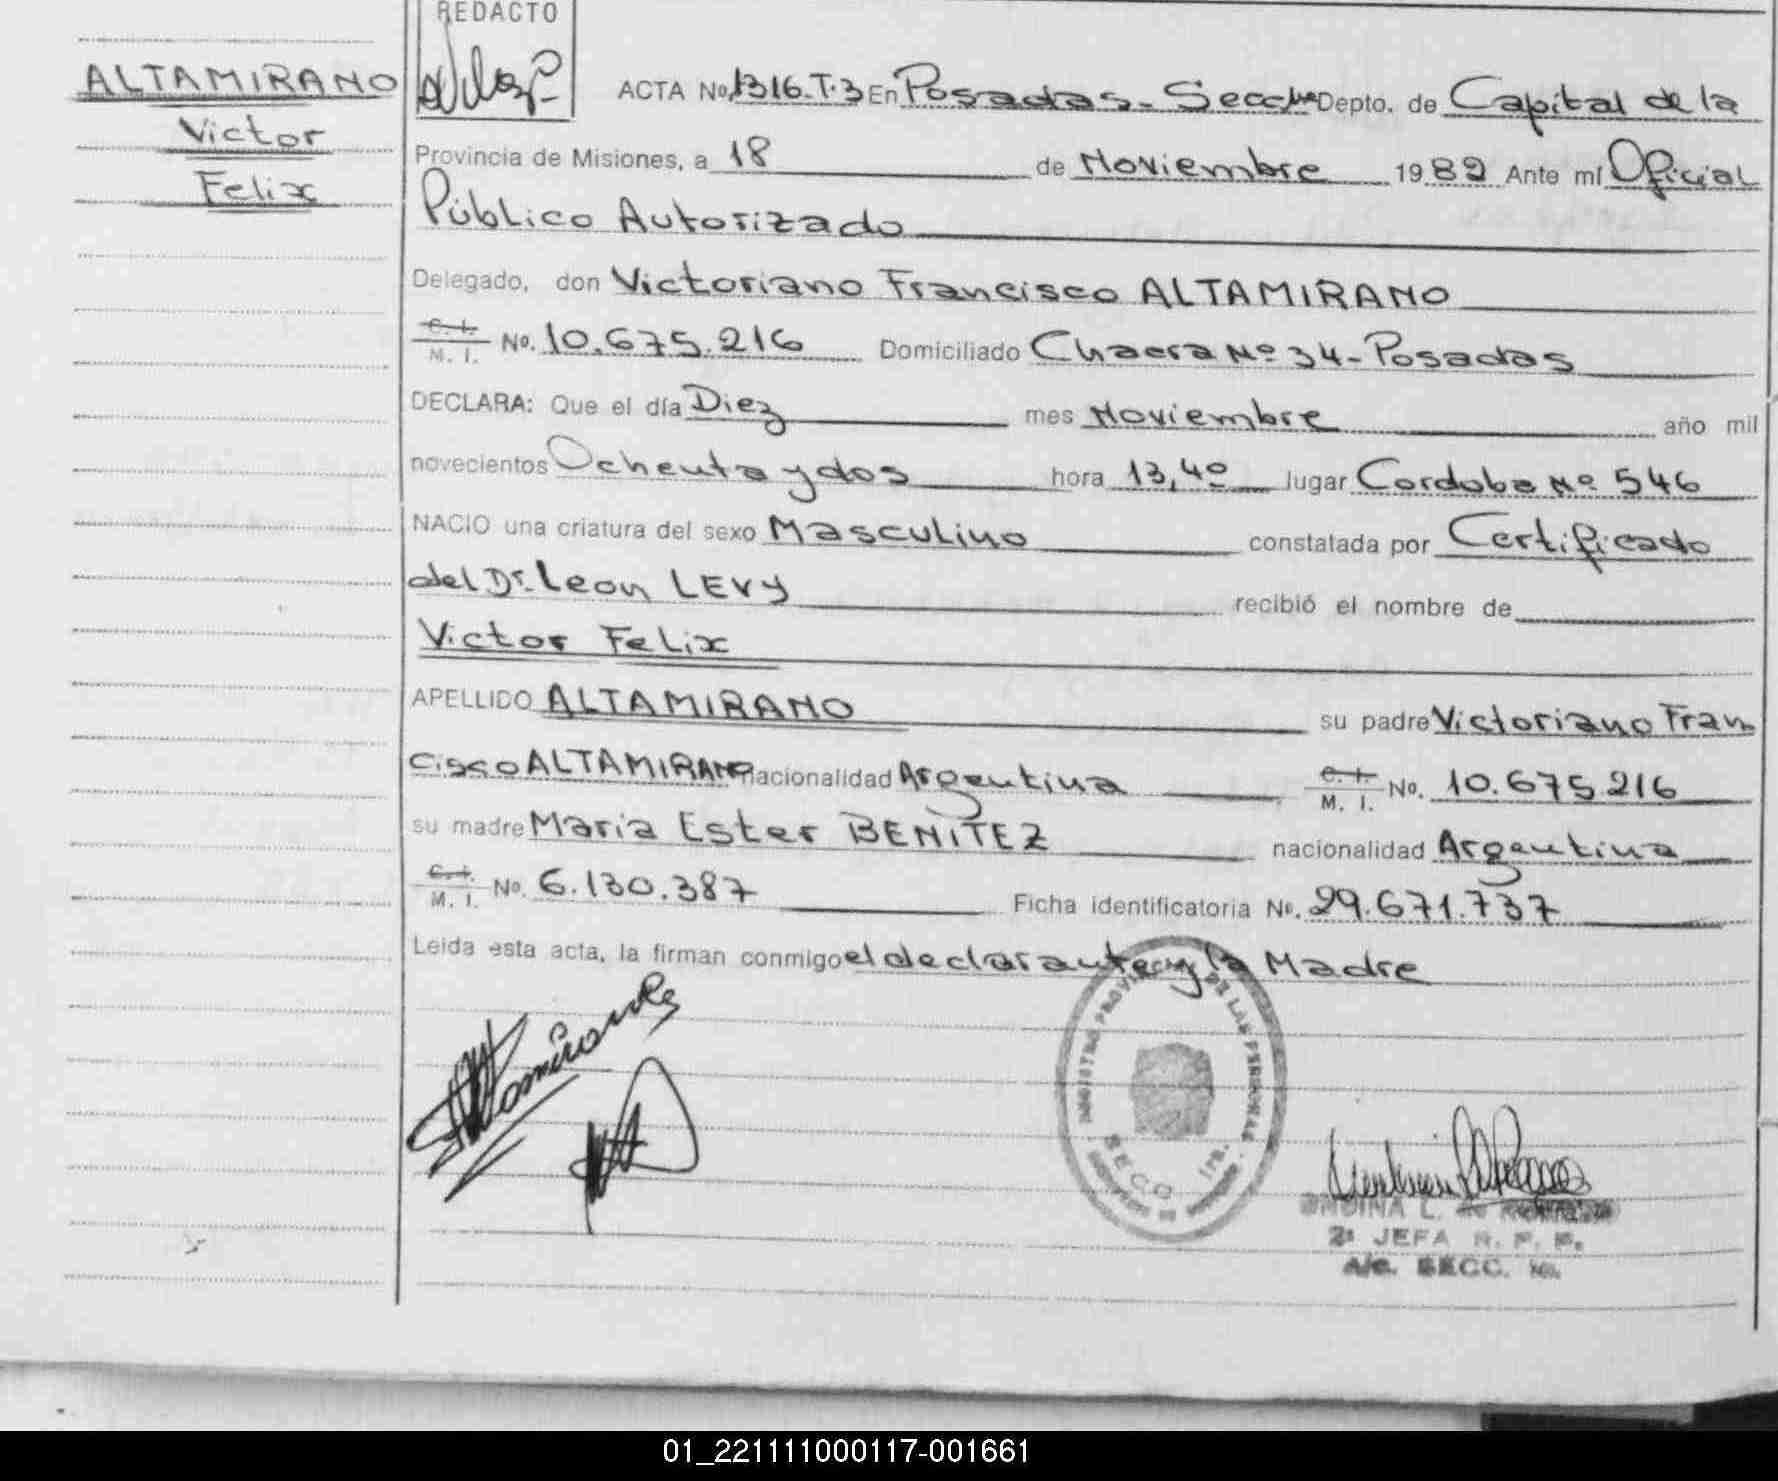 REDACTO
ALTAMIRANO
Victor
Felix
ACTA No. 1316.T.3 En Posadas - Secc 1ra Depto. de Capital de la
Provincia de Misiones, a 18 de Noviembre 1982 Ante mí Oficial
Público Autorizado
Delegado, don Victoriano Francisco ALTAMIRANO
C.I. M. I. No. 10.675.216 Domiciliado Chacra Nº 34 - Posadas
DECLARA: Que el día Diez mes Noviembre año mil
novecientos Ochenta y dos hora 13,40 lugar Cordoba Nº 546
NACIO una criatura del sexo Masculino constatada por Certificado
del Dr. Leon LEVY recibió el nombre de
Victor Felix
APELLIDO ALTAMIRANO su padre Victoriano Fran
cisco ALTAMIRANO nacionalidad Argentina C.I. M. I. No. 10.675.216
su madre Maria Ester BENITEZ nacionalidad Argentina
C.I. M. I. No. 6.130.387 Ficha identificatoria No. 29.671.737
Leída esta acta, la firman conmigo el declarante y la Madre
DE LAS PERSONAS
SECC. 1ra.
2ª JEFA R. P. P.
A/c. SECC. 1ra.
01_221111000117-001661